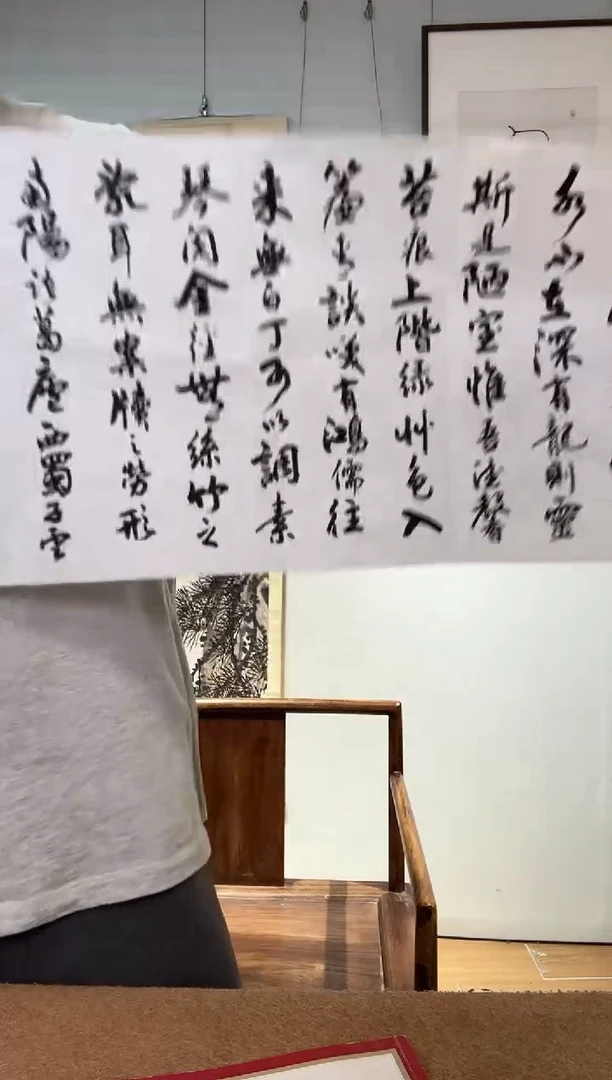 水不在深有龍則靈
斯是陋室惟吾德馨
苔痕上階綠艸色入
簾青談咲有鴻儒往
來無白丁可以調素
琴閱金經無絲竹之
亂耳無案牘之勞形
南陽諸葛廬西蜀子雲